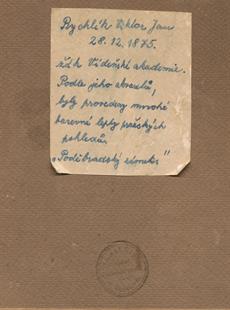 Rychlík Viktor Jan
28.12.1875.
žák Vídeňské akademie.
Podle jeho akvarelů,
byly provedeny mnohé
barevné lepty pražských
pohledů.
„Poděbradský zámek"